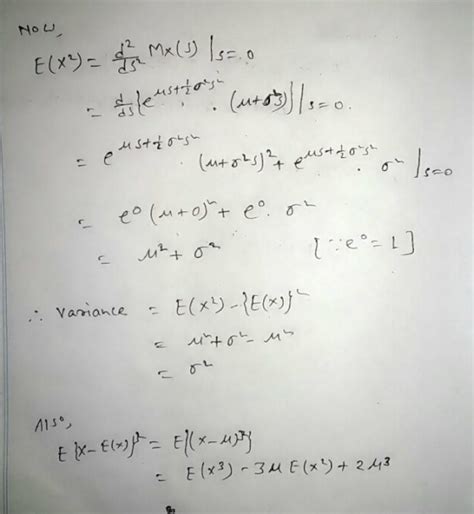 Now,
E(X²) = d²/ds² Mx(s) |s=0
= d/ds {e^(μs+½σ²s²) · (μ+σ²s)} |s=0.
= e^(μs+½σ²s²) (μ+σ²s)² + e^(μs+½σ²s²) · σ² |s=0
= e⁰ (μ+0)² + e⁰. σ²
= μ² + σ² [∵ e⁰ = 1]
∴ Variance = E(X²) - {E(X)}²
= μ² + σ² - μ²
= σ²
Also,
E{X - E(X)}³ = E{(X - μ)³}
= E(X³) - 3μ E(X²) + 2μ³